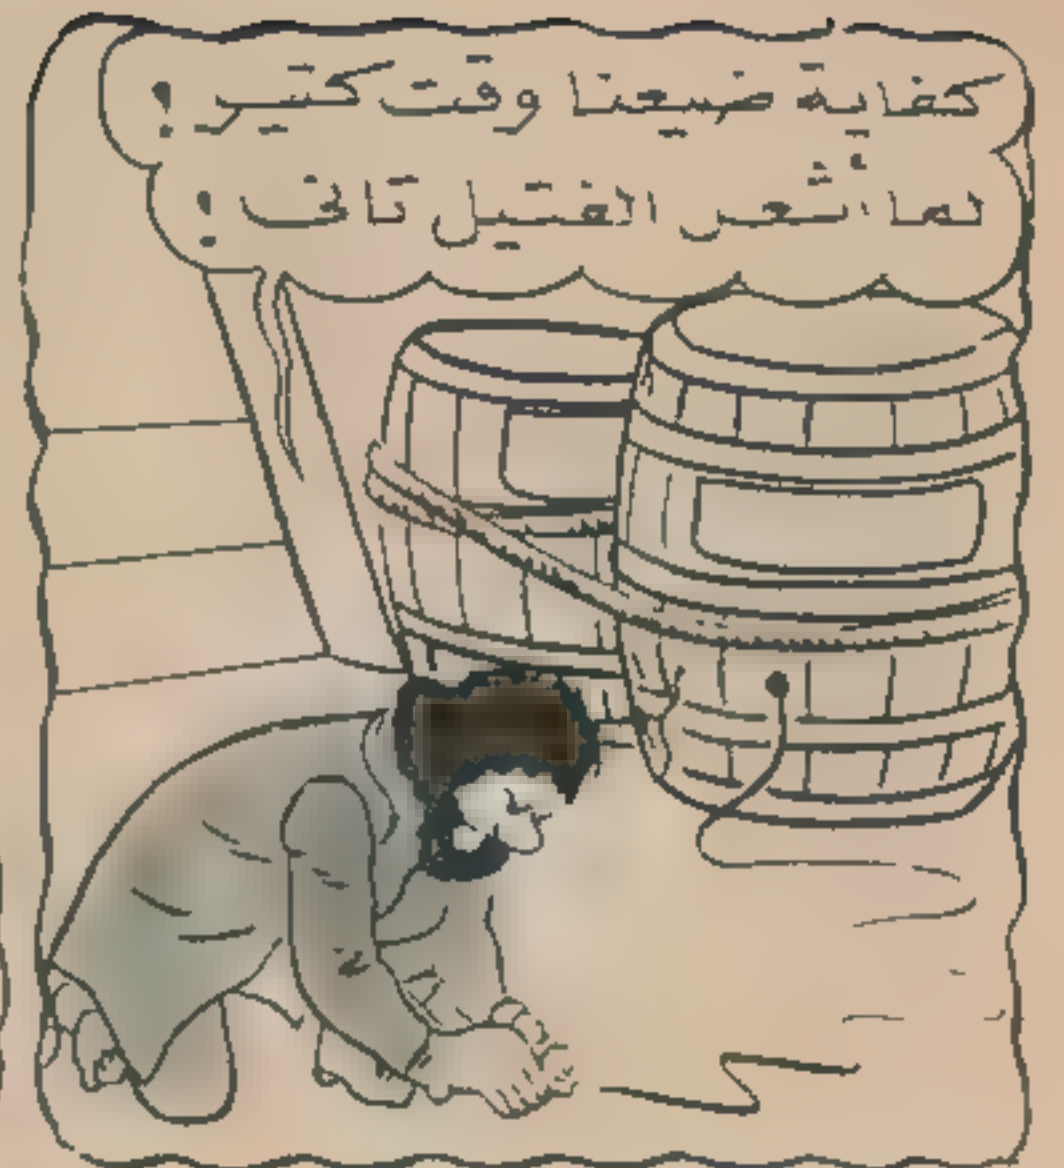 كفاية ضيعنا وقت كتير !
لما أشعل الفتيل تانى !